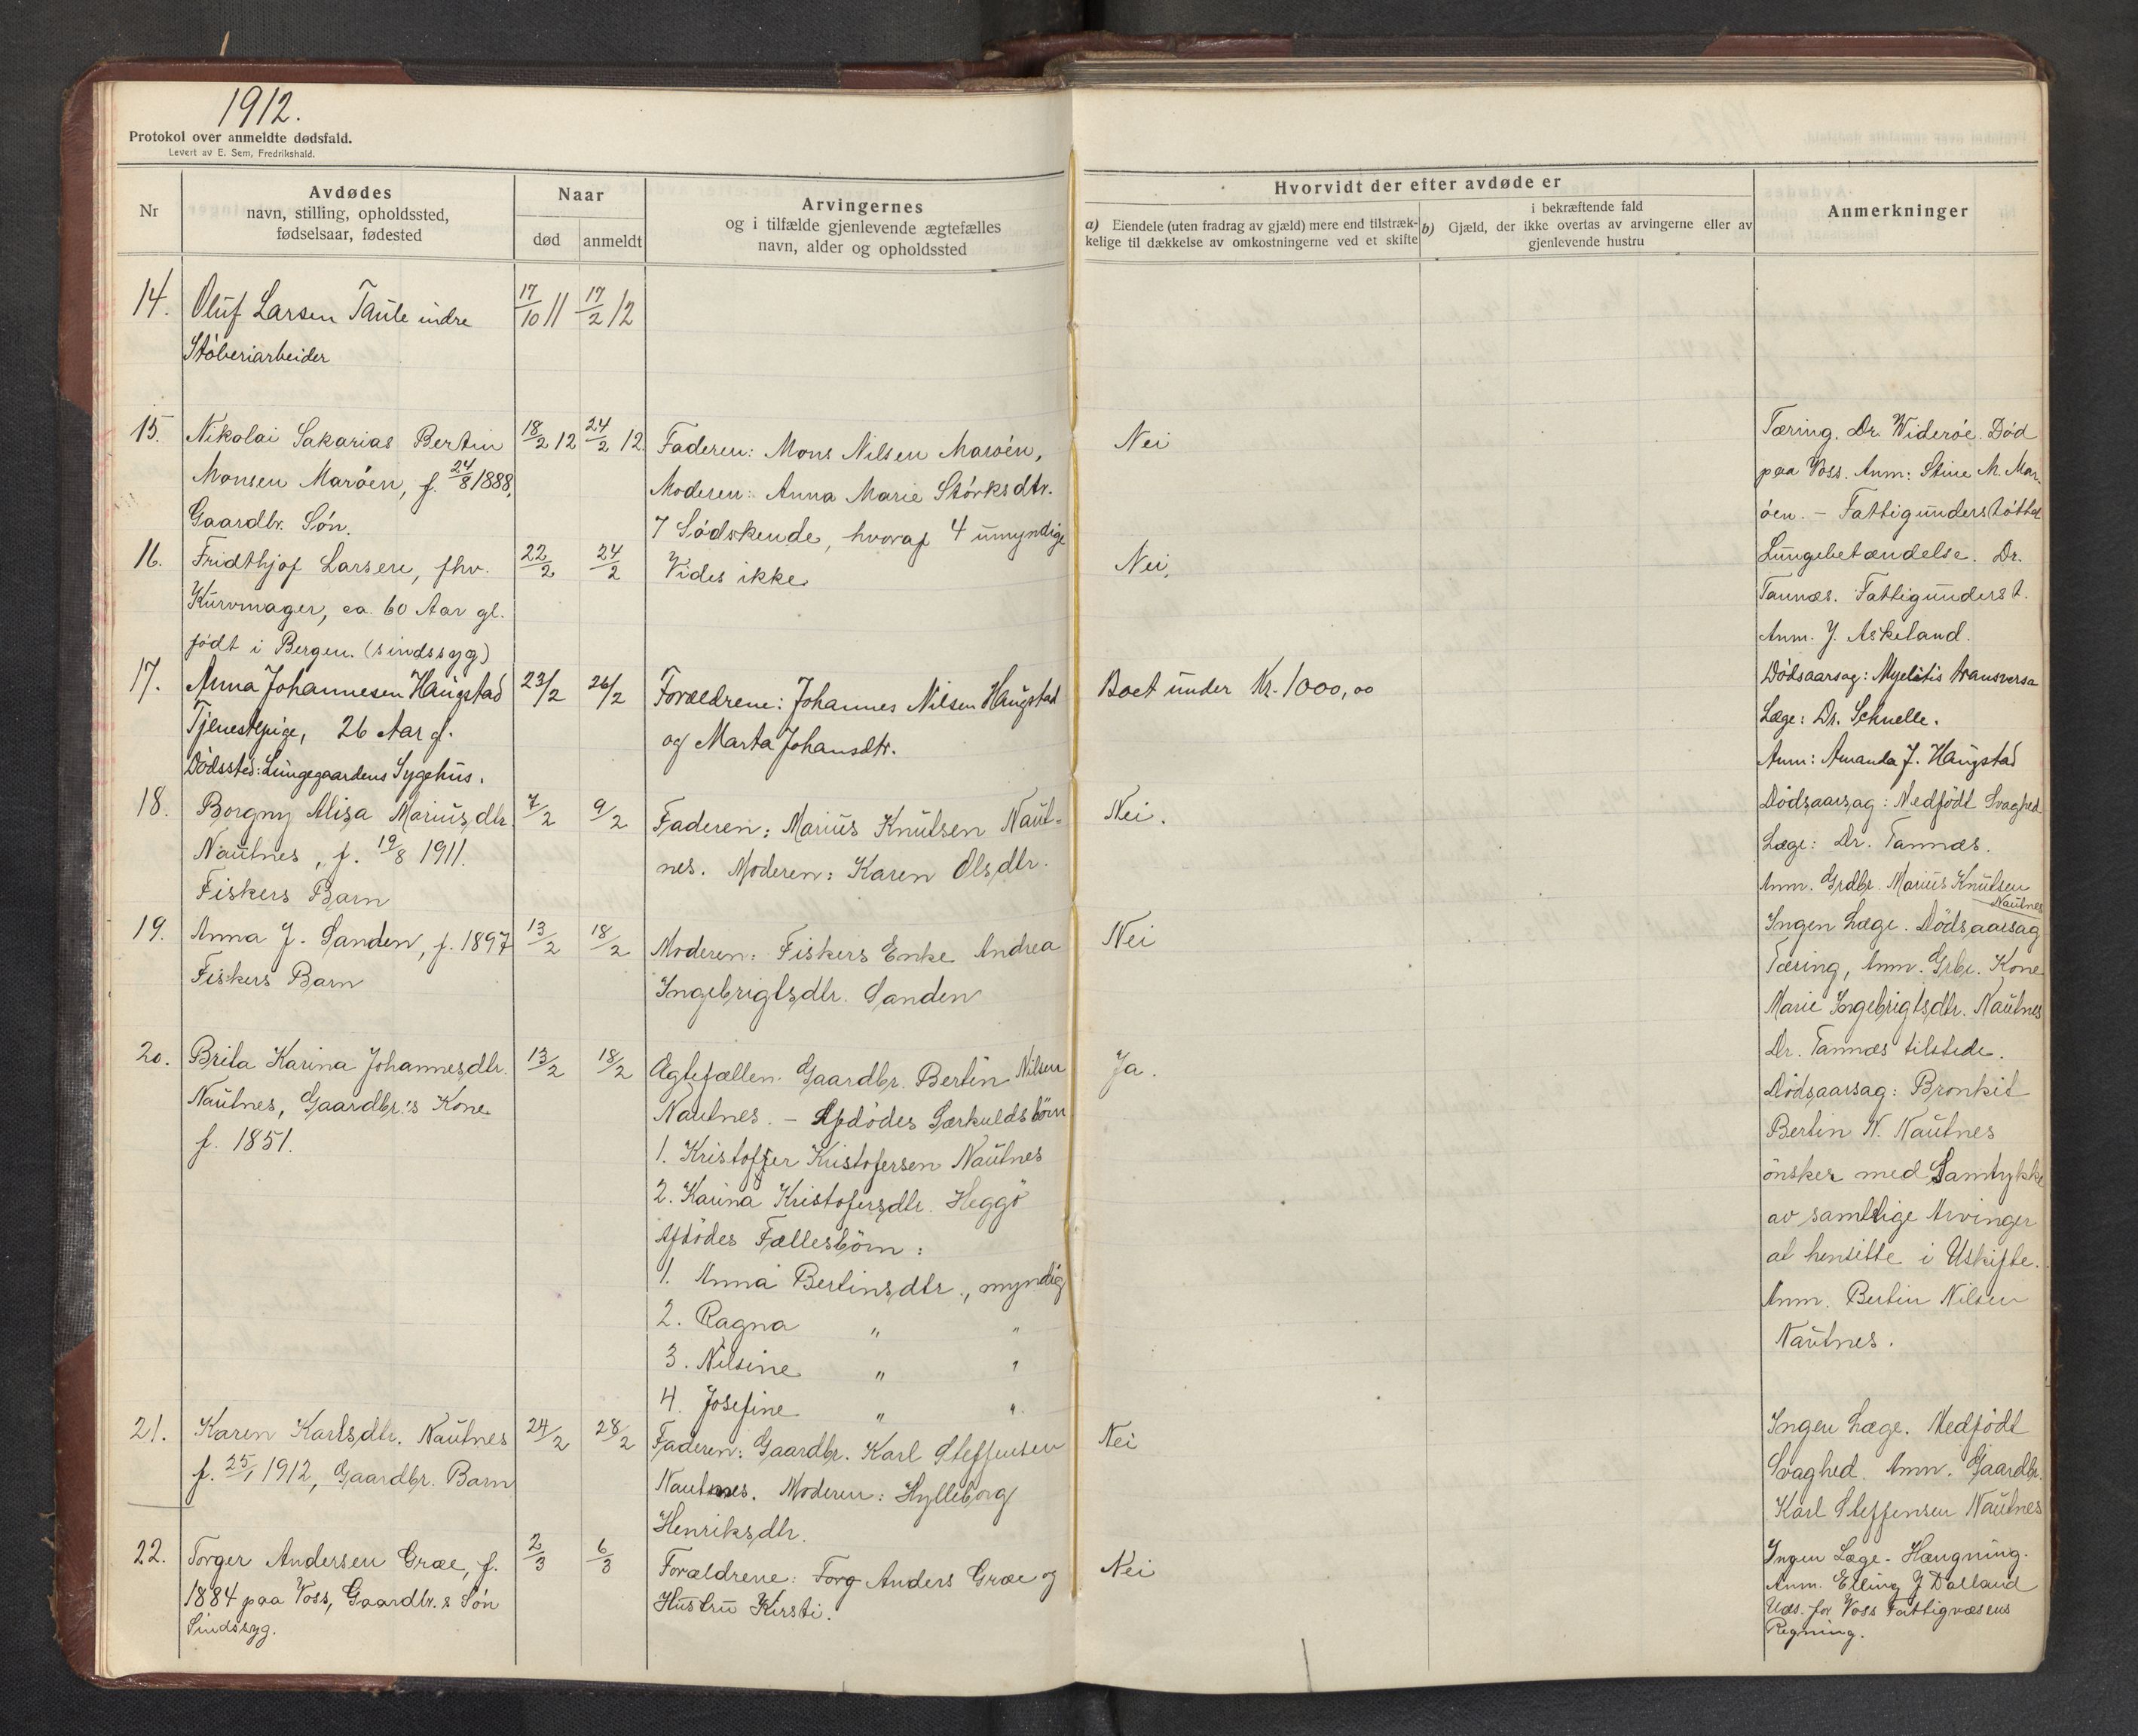 1912.
Protokol over anmeldte dødsfald.
Levert av E. Sem, Fredrikshald.
Nr
Avdødes
navn, stilling, opholdssted,
fødselsaar, fødested
Naar
død
anmeldt
Arvingernes
og i tilfælde gjenlevende ægtefælles
navn, alder og opholdssted
Hvorvidt der efter avdøde er
a) Eiendele (uten fradrag av gjæld) mere end tilstræk-
kelige til dækkelse av omkostningerne ved et skifte
i bekræftende fald
b) Gjæld, der ikke overtas av arvingerne eller av
gjenlevende hustru
Anmerkninger
14.
Oluf Larsen Taule indre
Støberiarbeider
17/10 11
17/2 12
15.
Nikolai Sakarias Bertin
Monsen Marøen, f. 24/8 1888,
Gaardbr. Søn.
18/2 12
24/2 12
Faderen: Mons Nilsen Marøen,
Moderen: Anna Marie Størksdtr.
7 Sødskende, hvoraf 4 umyndige
Nei
Tæring. Dr. Widerøe. Død
paa Voss. Anm: Stine M. Mar-
øen. - Fattigunderstøttet
16.
Fridthjof Larsen, fhv.
Kurvmager, ca. 60 Aar gl.
født i Bergen. (sindssyg)
22/2
24/2
Vides ikke
Nei.
Lungebetændelse. Dr.
Tannæs. Fattigunderst.
Anm. J. Askeland.
17.
Anna Johannesen Haugstad
Tjenestepige, 26 Aar gl.
Dødssted: Lungegaardens Sygehus.
23/2
26/2
Forældrene: Johannes Nilsen Haugstad
og Marta Johansdtr.
Boet under Kr. 1000,00
Dødsaarsag: Myelitis transversa
Læge: Dr. Schnelle.
Anm: Amanda J. Haugstad
18.
Borgny Alisa Mariusdtr.
Nautnes, f. 19/8 1911.
Fiskers Barn
7/2
9/2
Faderen: Marius Knutsen Naut-
nes. Moderen: Karen Olsdtr.
Nei.
Dødsaarsag: Medfødt Svaghed
Læge: Dr. Tannæs.
Anm. Grdbr. Marius Knutsen
Nautnes
19.
Anna J. Sanden, f. 1897
Fiskers Barn
13/2
18/2
Moderen: Fiskers Enke Andrea
Ingebrigtsdtr. Sanden
Nei
Ingen Læge. Dødsaarsag
Tæring, Anm. Grbr. Kone
Marie Ingebrigtsdtr. Nautnes
20.
Brita Karina Johannesdtr.
Nautnes, Gaardbr.'s Kone
f. 1851.
13/2
18/2
Ægtefællen. Gaardbr. Bertin Nilsen
Nautnes. - Afdødes Særkuldsbørn
1. Kristoffer Kristofersen Nautnes
2. Karina Kristofersdtr. Heggø
Afdødes Fællesbørn:
1. Anna Bertinsdtr., myndig
2. Ragna " "
3. Nilsine " "
4. Josefine " "
Ja.
Dr. Tannæs tilstede.
Dødsaarsag: Bronkit
Bertin N. Nautnes
ønsker med Samtykke
av samtlige Arvinger
at hensitte i Uskifte.
Anm. Bertin Nilsen
Nautnes.
21.
Karen Karlsdtr. Nautnes
f. 25/1 1912, Gaardbr. Barn
24/2
28/2
Faderen: Gaardbr. Karl Steffensen
Nautnes. Moderen: Hylleborg
Henriksdtr.
Nei
Ingen Læge. Medfødt
Svaghed. Anm. Gaardbr.
Karl Steffensen Nautnes
22.
Torger Andersen Græe, f.
1884 paa Voss, Gaardbr.s Søn
Sindssyg.
2/3
6/3
Forældrene: Torg Anders Græe og
Hustru Kirsti.
Nei
Ingen Læge - Hængning.
Anm. Elling J Dalland
Uds. for Voss Fattigvæsens
Regning.